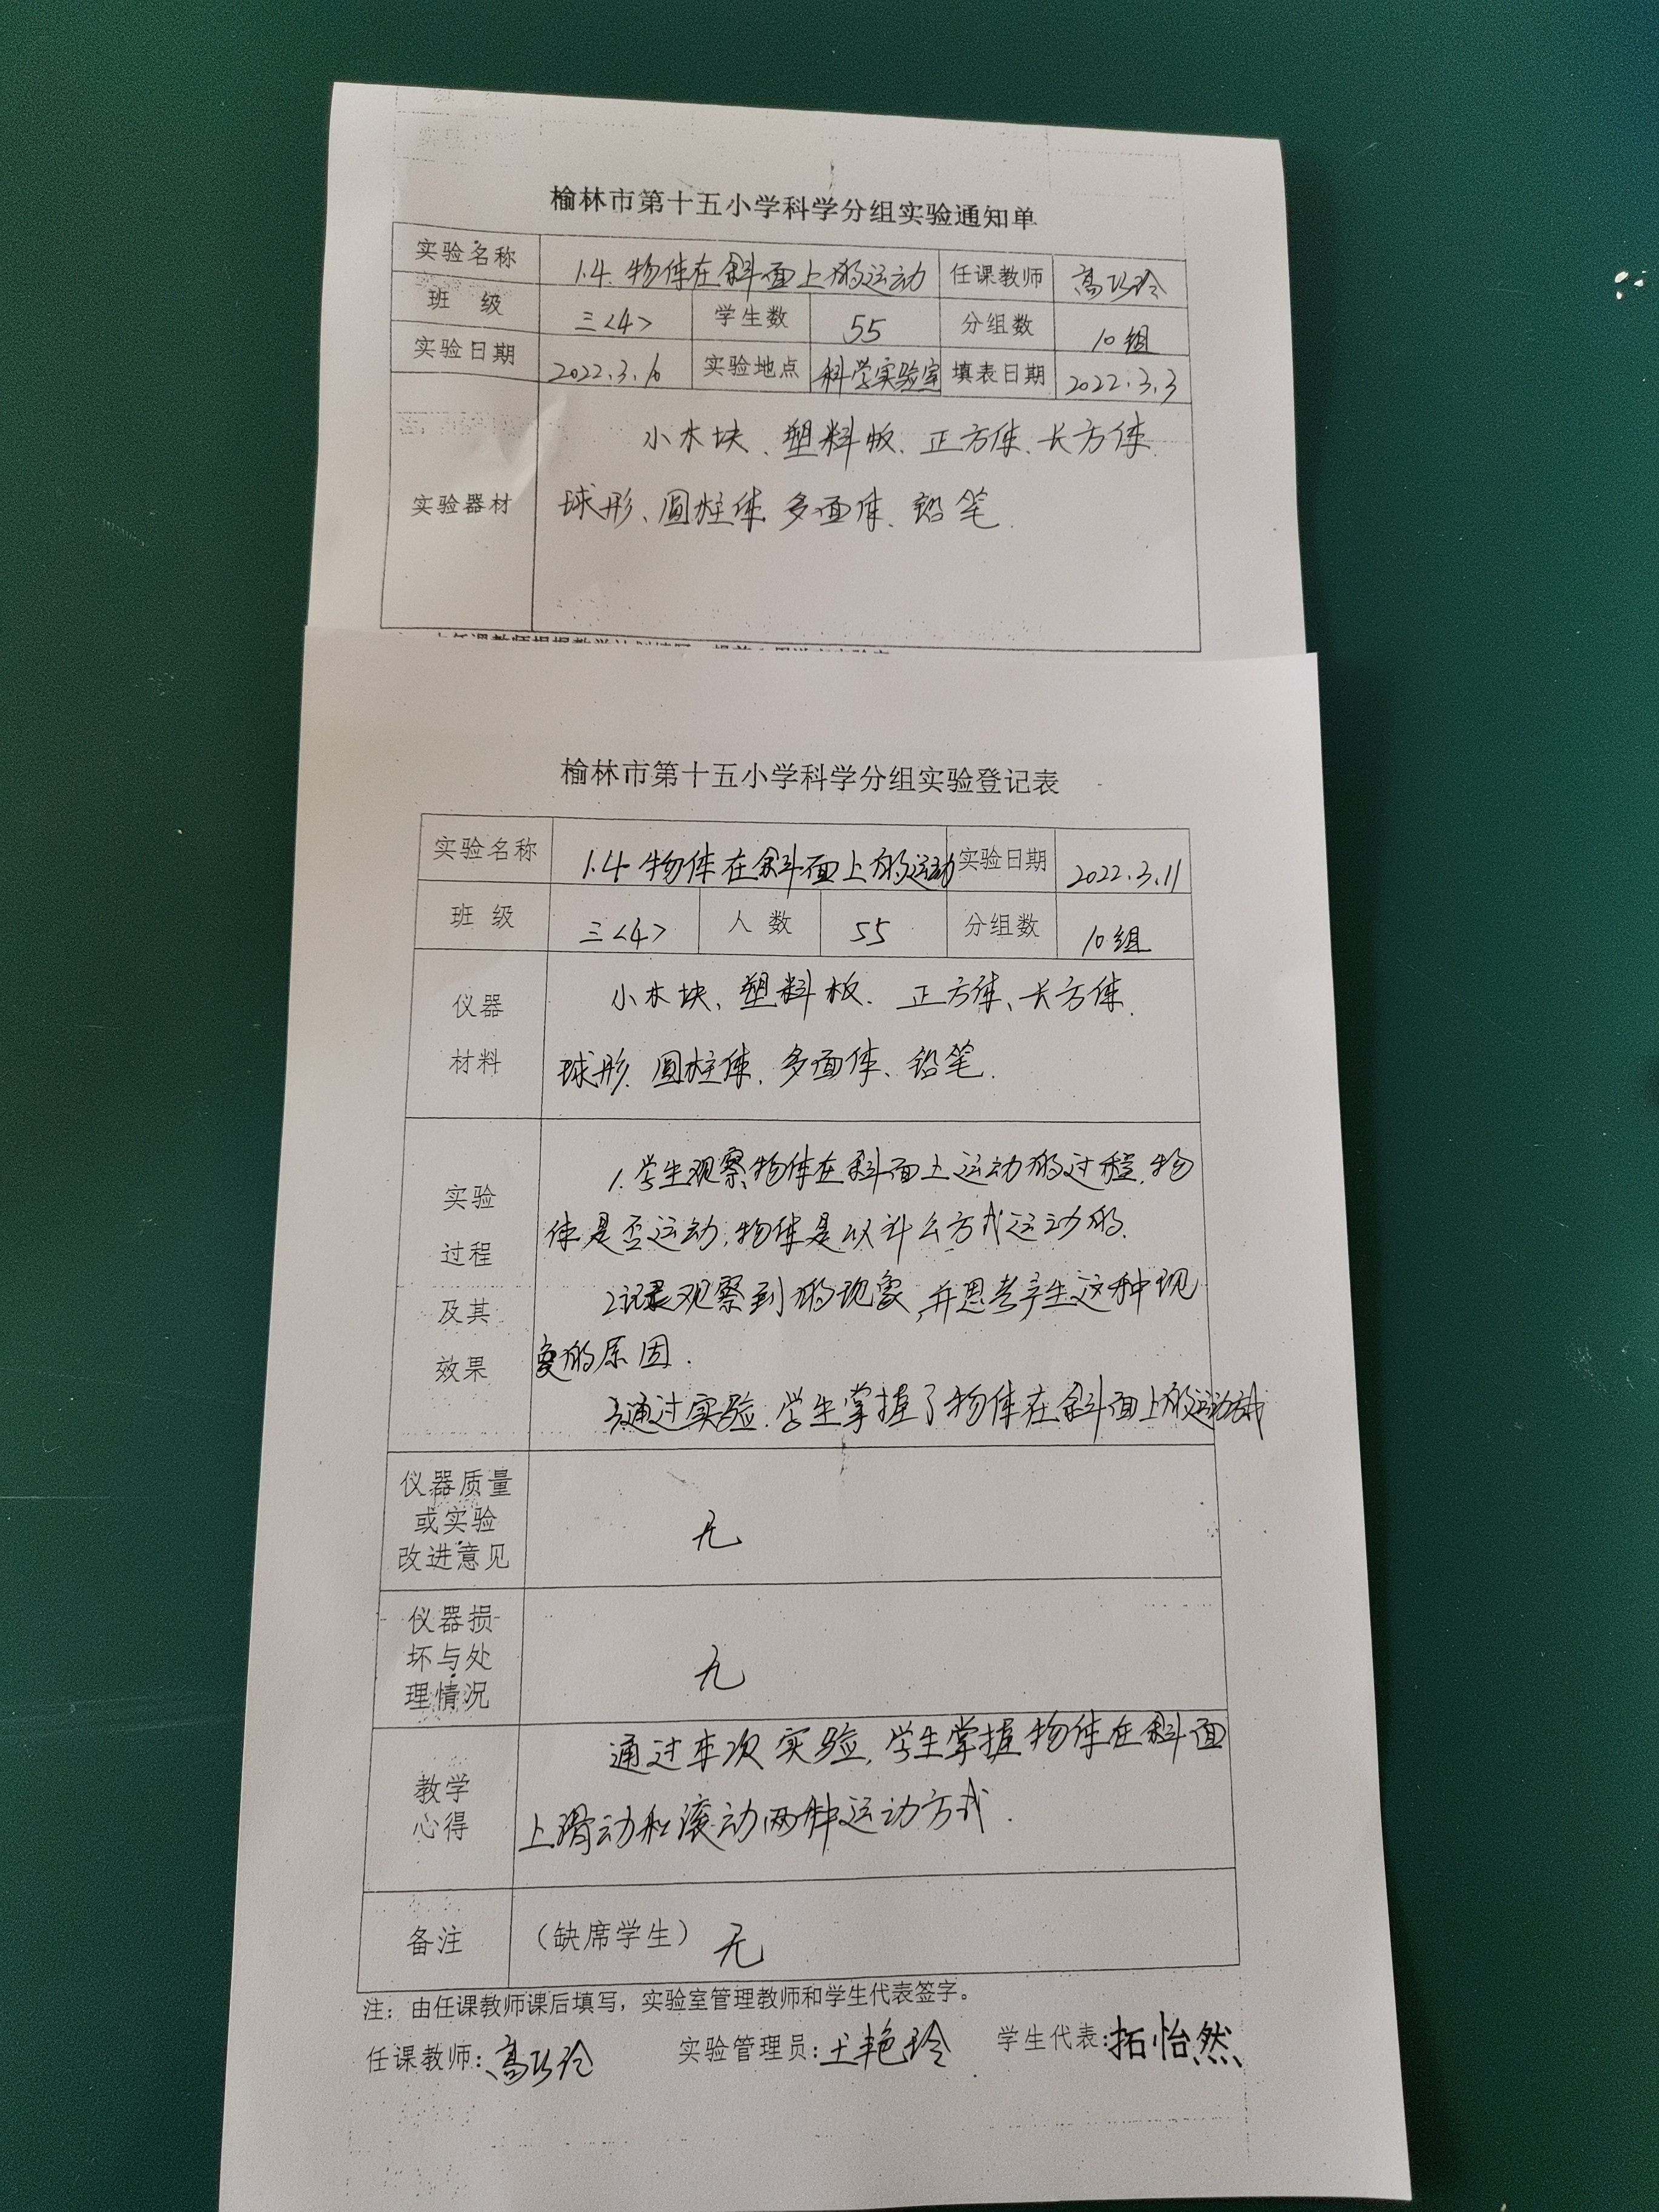 榆林市第十五小学科学分组实验通知单
实验名称 1.4 物体在斜面上的运动 任课教师 高巧玲
班 级 三<4> 学生数 55 分组数 10组
实验日期 2022.3.10 实验地点 科学实验室 填表日期 2022.3.3
实验器材
小木块、塑料板、正方体、长方体、
球形、圆柱体、多面体、铅笔.
榆林市第十五小学科学分组实验登记表
实验名称 1.4 物体在斜面上的运动 实验日期 2022.3.11
班 级 三<4> 人 数 55 分组数 10组
仪器
材料
小木块、塑料板、正方体、长方体、
球形、圆柱体、多面体、铅笔.
实验
过程
及其
效果
1.学生观察物体在斜面上运动的过程,物
体是否运动,物体是以什么方式运动的.
2.记录观察到的现象,并思考产生这种现
象的原因.
3.通过实验,学生掌握了物体在斜面上的运动方式
仪器质量
或实验
改进意见
无
仪器损
坏与处
理情况
无
教学
心得
通过本次实验,学生掌握物体在斜面
上滑动和滚动两种运动方式.
备注 (缺席学生) 无
注:由任课教师课后填写,实验室管理教师和学生代表签字。
任课教师:高巧玲 实验管理员:王艳玲 学生代表:拓怡然